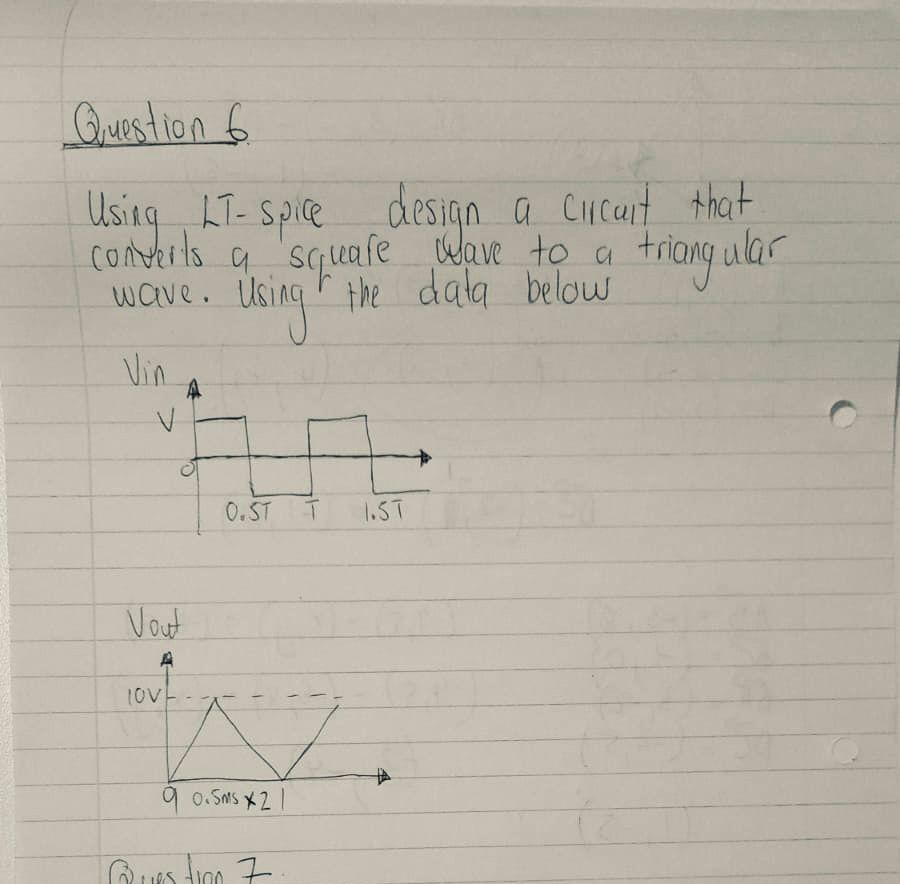 Question 6
Using LT-spice design a circuit that
converts a square wave to a triangular
wave. Using the data below
Vin
V
0
0.5T T 1.5T
Vout
10V
0.5ms x2 1
Question 7